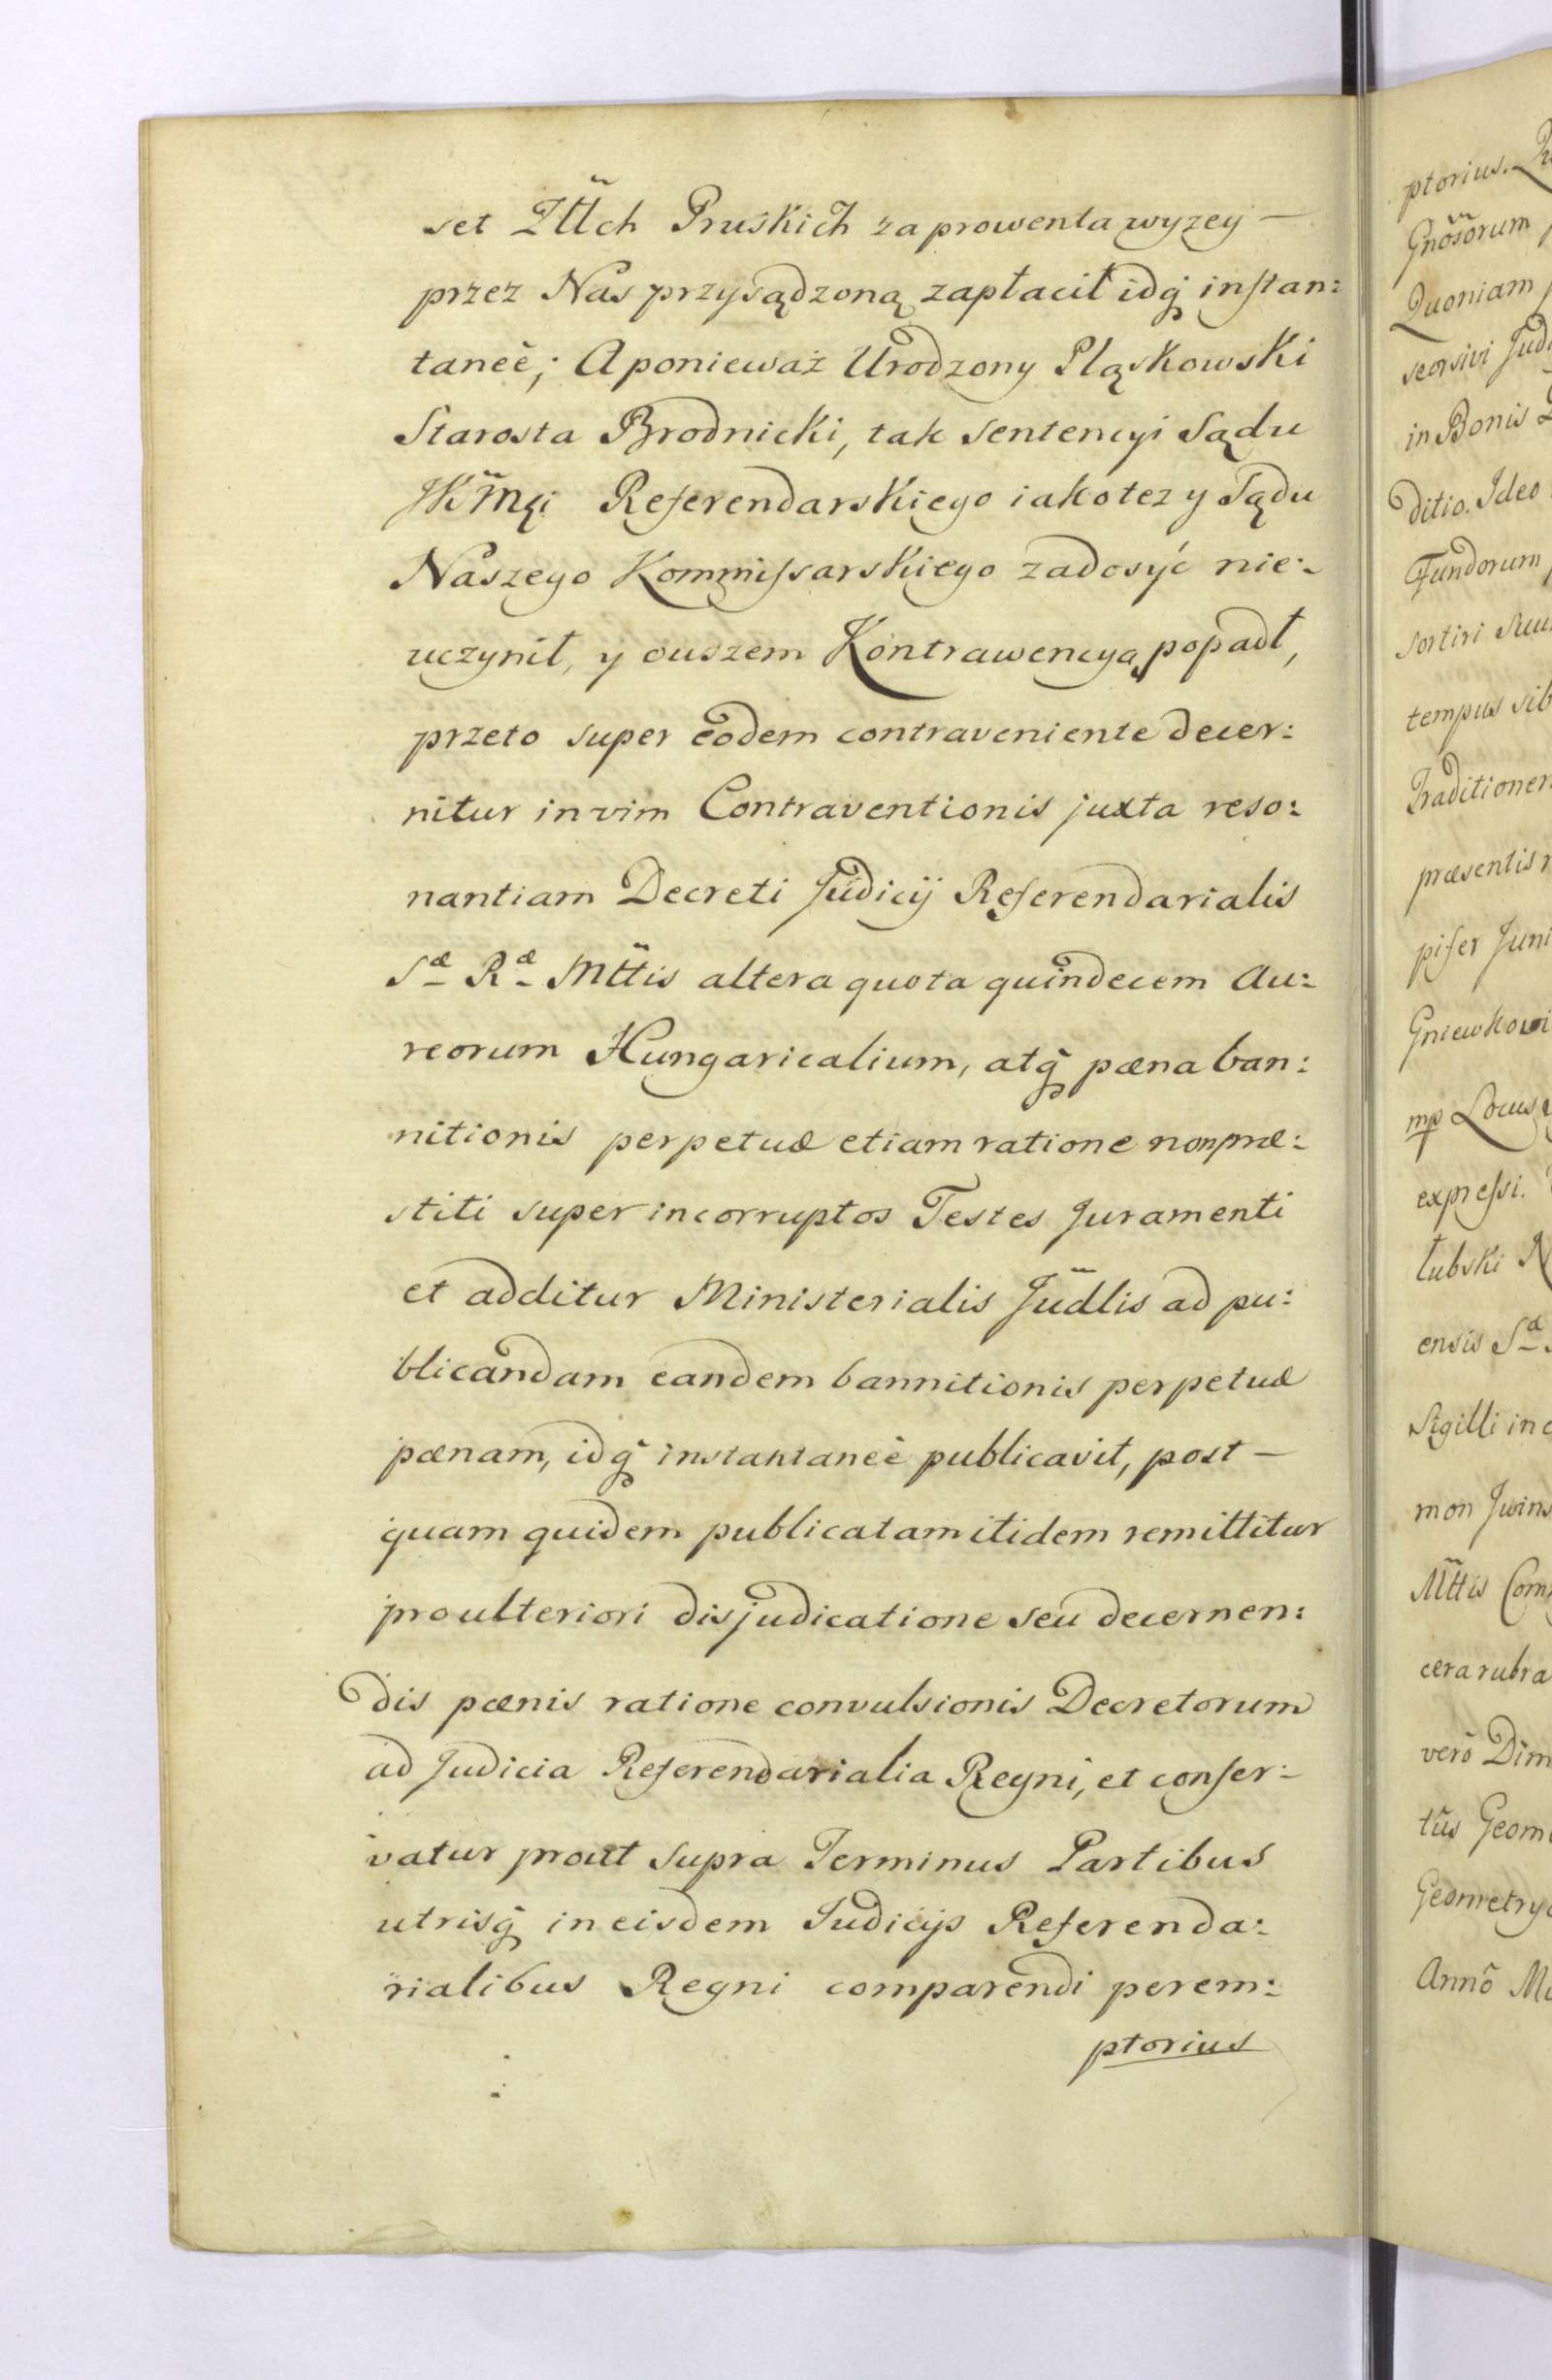 set Złłch Pruskich za prowenta wyzey —
przez Nas przysądzoną zapłacił idq́ instan:
taneè; A ponieważ Urodzony Pląskowski
Starosta Brodnicki, tak Sentencyi Sądu
JKMci Referendarskiego iako tez y Sądu
Naszego Kommissarskiego zadosyć nie:
uczynił, y owszem Kontrawencyą popadł,
przeto super eodem contraveniente decer:
nitur in vim Contraventionis juxta reso:
nantiam Decreti Judicij Referendarialis
Sæ Ræ Mttis altera quota quindecem Au:
reorum Hungaricalium, atq́ pæna ban:
nitionis perpetuæ etiam ratione non præ:
stiti super incorruptos Testes Juramenti
et additur Ministerialis Judlis ad pu:
blicandam eandem bannitionis perpetuæ
pænam, idq́ instantaneè publicavit, post —
quam quidem publicatam itidem remittitur
pro ulteriori disjudicatione seu decernen:
dis pænis ratione convulsionis Decretorum
ad Judicia Referendarialia Regni, et conser:
vatur prout supra Terminus Partibus
utrisq́ in eisdem Judicijs Referenda:
rialibus Regni comparendi perem:
ptorius
ptorius.
Gnosorum
Quoniam
seorsivi
in Bonis
ditio. Ideo
Fundorum
sortiri
tempus
præsentis
piser Juni
mp Locus
expressi.
łubski
ensis Sæ
Sigilli in
mon
Mttis
cera rubra
verò
tus
Annô